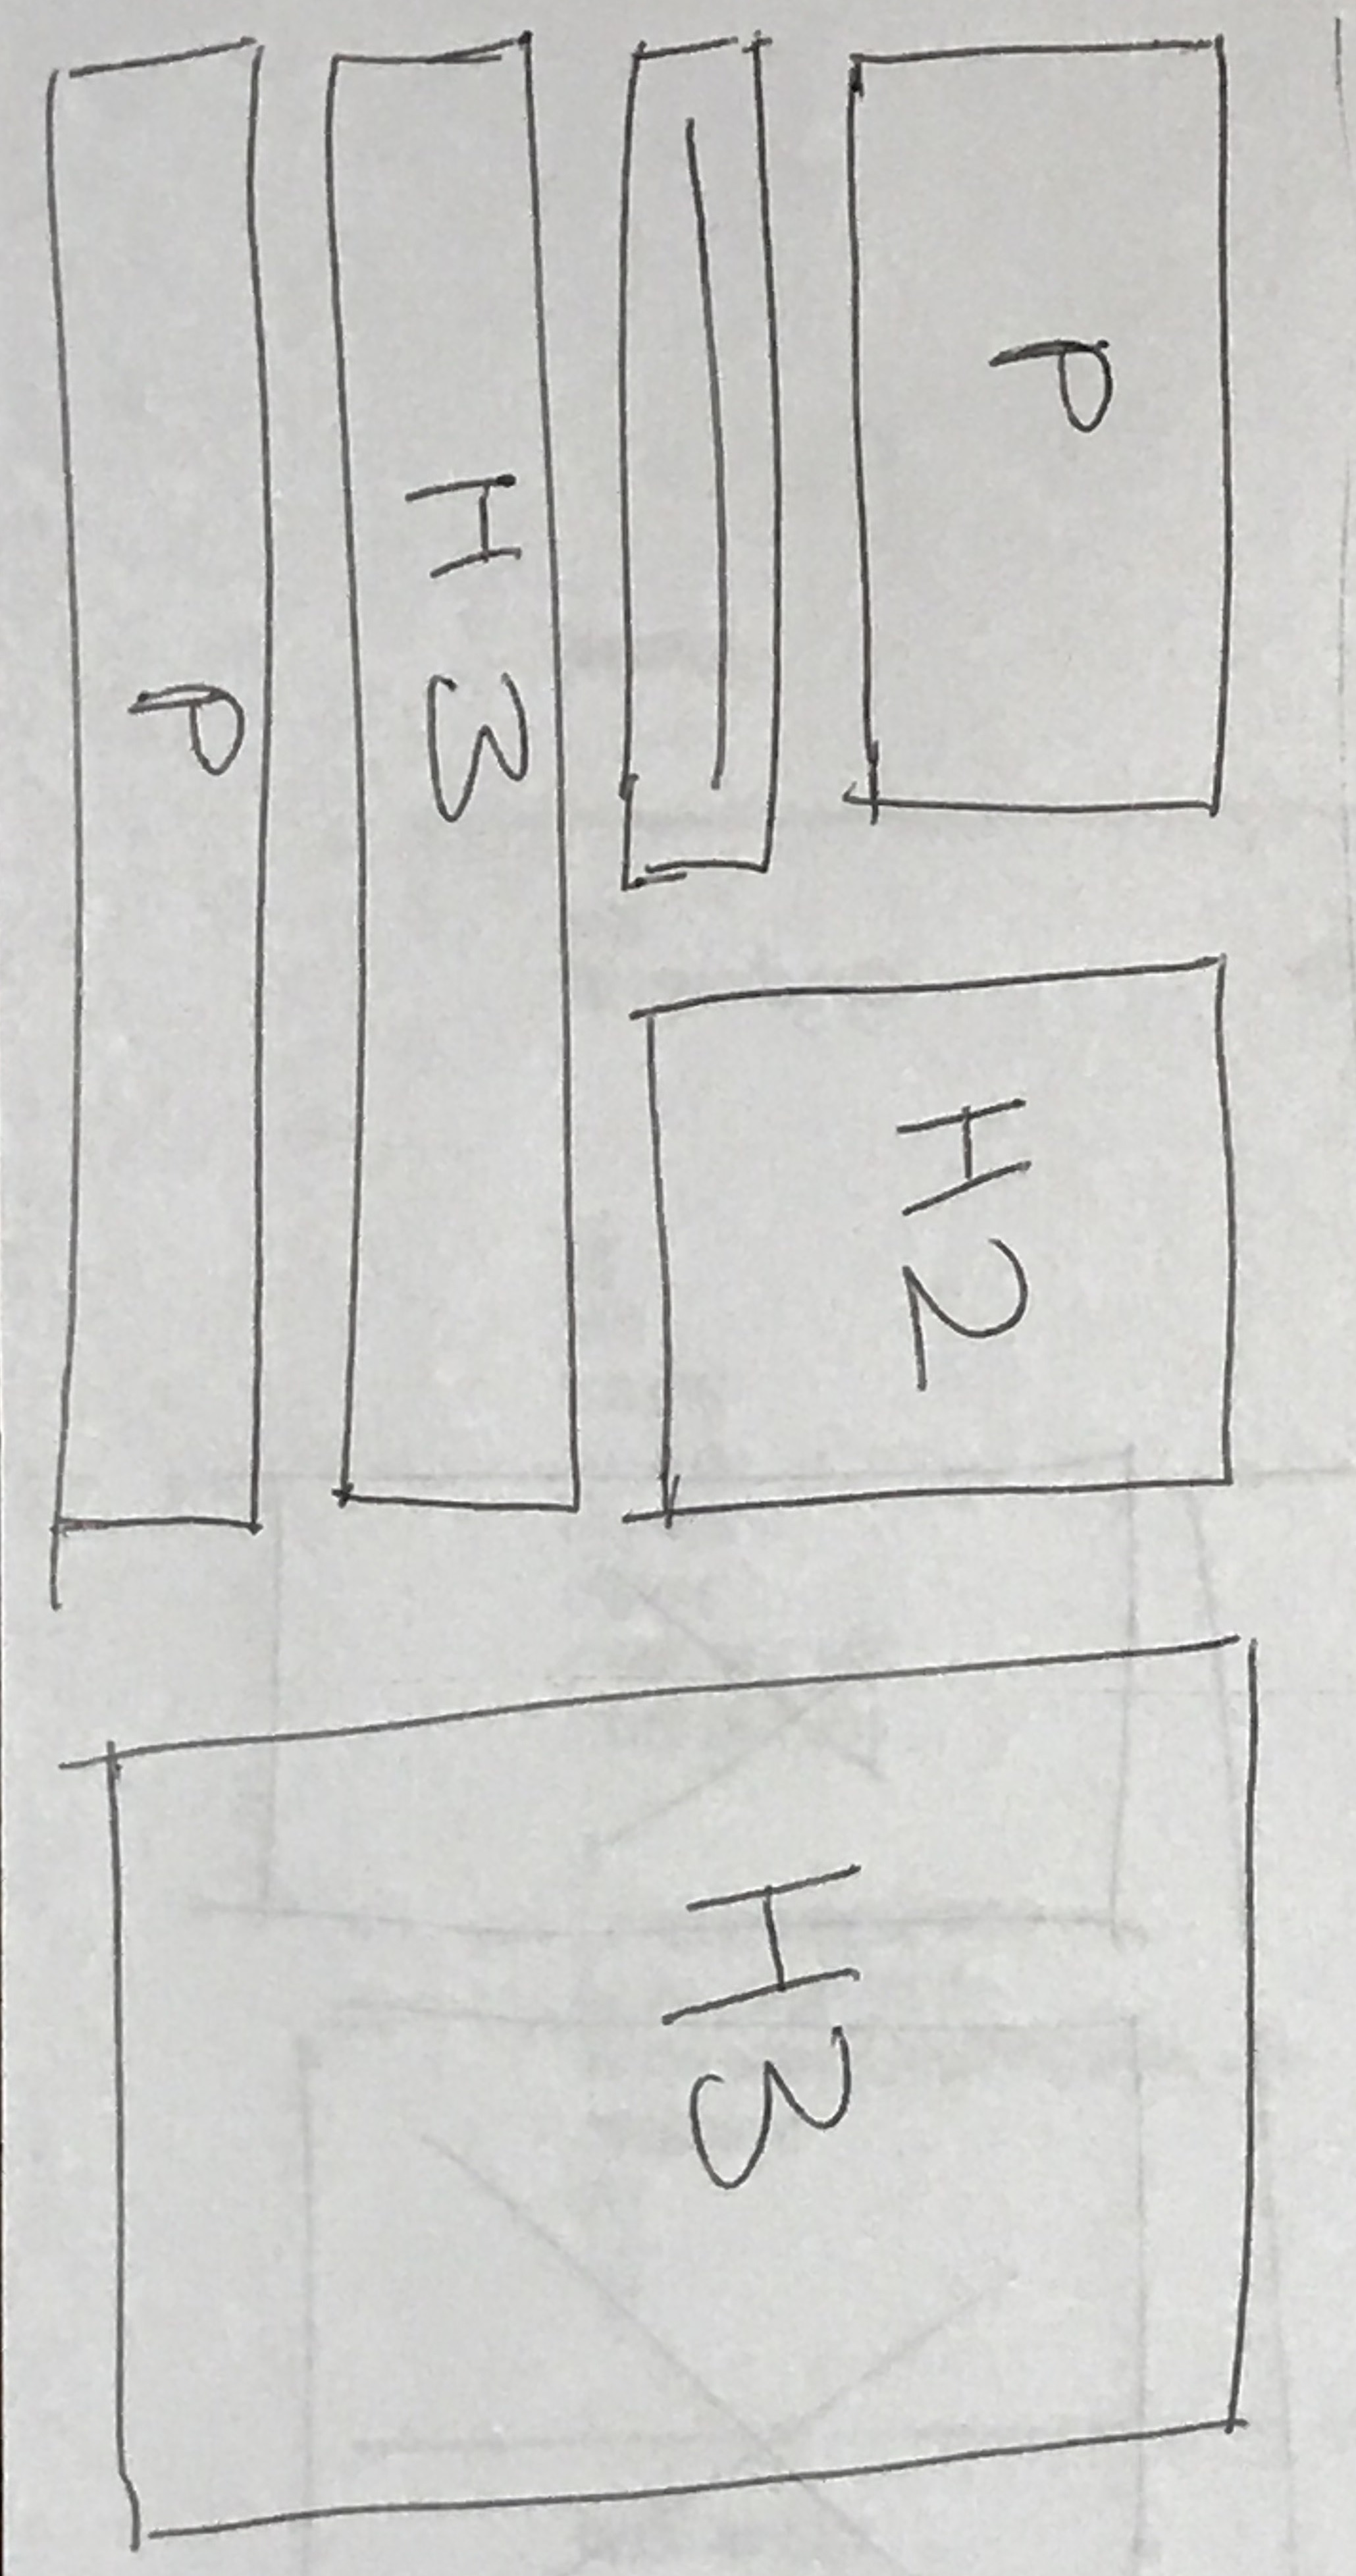 P
H2
H3
H 3
P